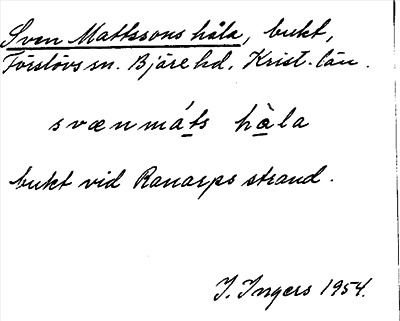 Sven Mattssons håla, bukt,
Förslövs sn. Bjäre hd. Krist. län.
svænmáts hàla
bukt vid Ranarps strand.
I. Ingers 1954.